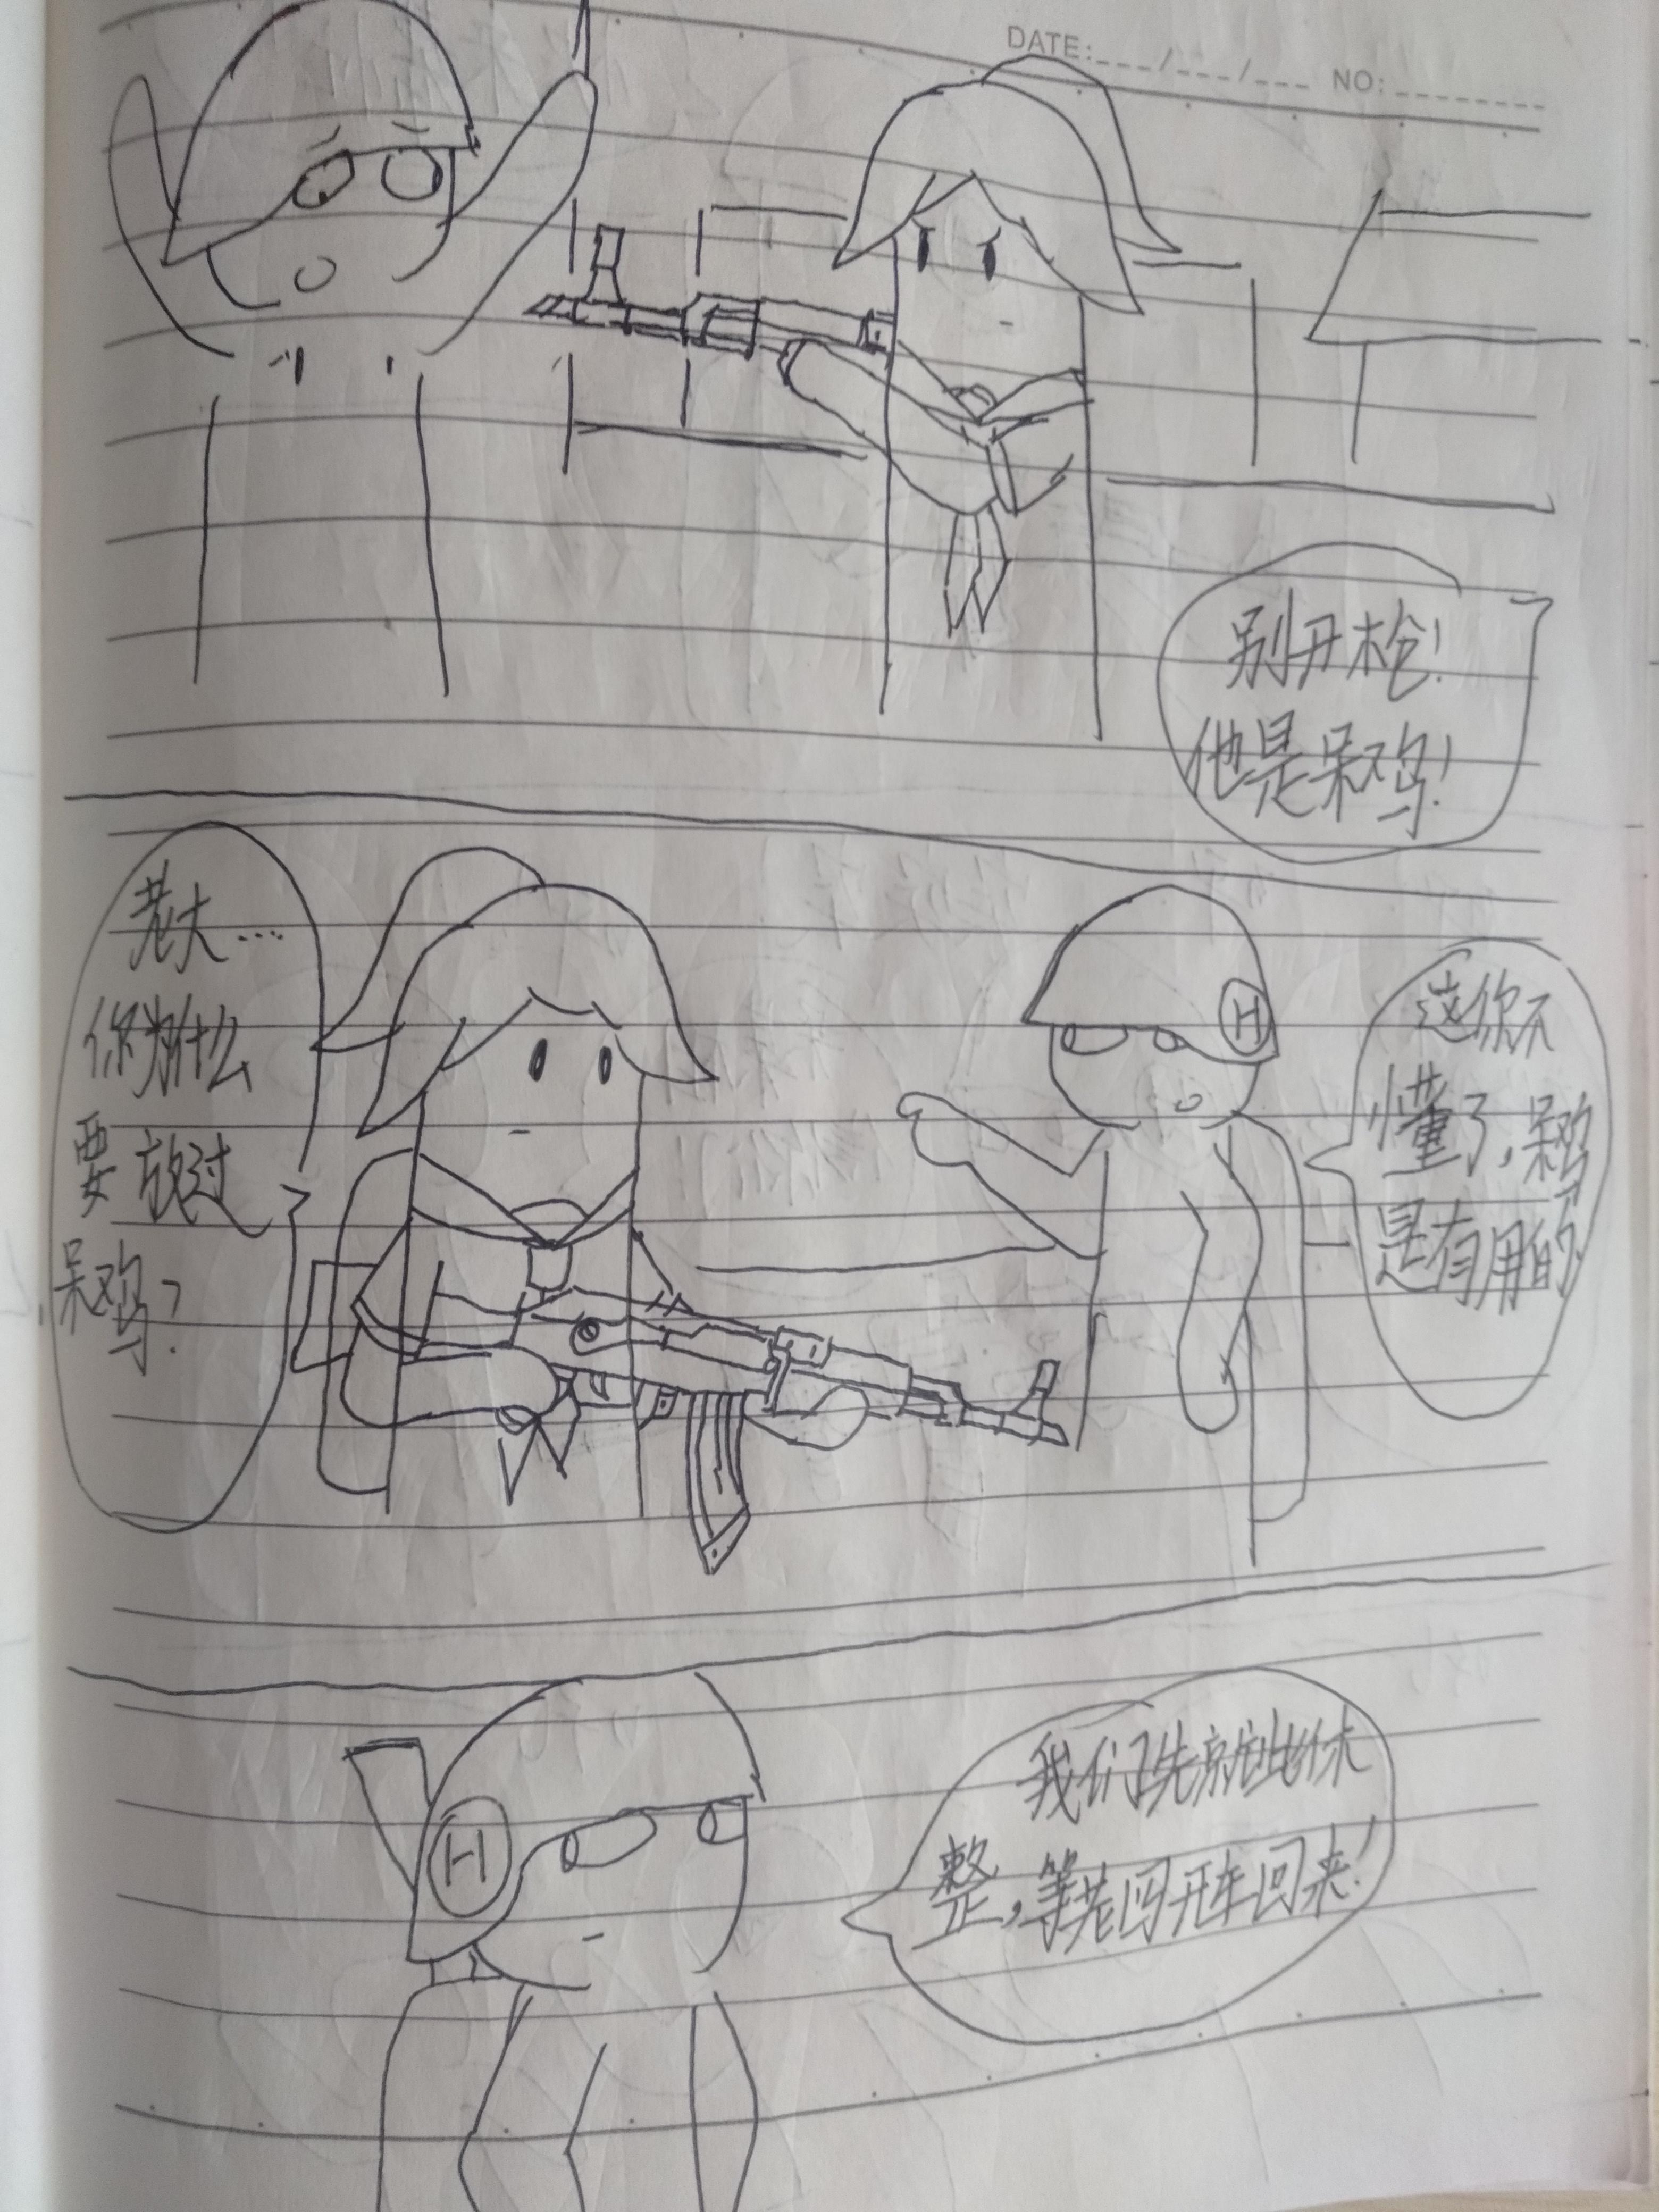 DATE:___/___/___ NO:________
别开枪!
他是呆鸡!
老大…
你为什么
要放过
呆鸡?
H
这你不
懂了,呆鸡
是有用的
H
我们先就此休
整,等老四开车回来!